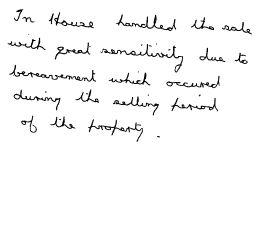 In House handled the sale
with great sensitivity due to
bereavement which occured
during the selling period
of the property.